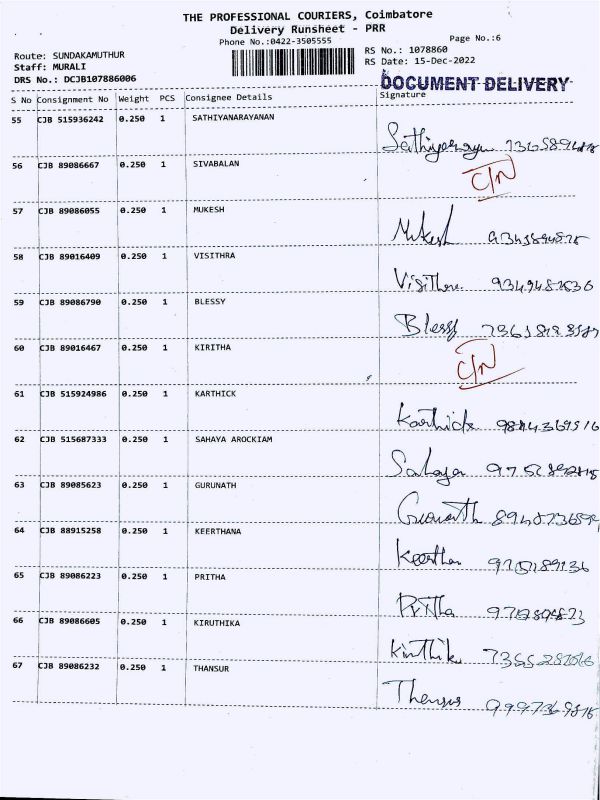 THE PROFESSIONAL COURIERS, Coimbatore
Delivery Runsheet - PRR
Phone No.:0422-3505555
Page No.:6
Route: SUNDAKAMUTHUR
Staff: MURALI
DRS No.: DCJB107886006
RS No.: 1078860
RS Date: 15-Dec-2022
DOCUMENT DELIVERY
S No Consignment No Weight PCS Consignee Details Signature
55 CJB 515936242 0.250 1 SATHIYANARAYANAN
56 CJB 89086667 0.250 1 SIVABALAN C/N
57 CJB 89086055 0.250 1 MUKESH Mukesh
58 CJB 89016409 0.250 1 VISITHRA
59 CJB 89086790 0.250 1 BLESSY Blessy
60 CJB 89016467 0.250 1 KIRITHA C/N
61 CJB 515924986 0.250 1 KARTHICK Karthick
62 CJB 515687333 0.250 1 SAHAYA AROCKIAM Sahaya
63 CJB 89085623 0.250 1 GURUNATH
64 CJB 88915258 0.250 1 KEERTHANA
65 CJB 89086223 0.250 1 PRITHA Pritha
66 CJB 89086605 0.250 1 KIRUTHIKA
67 CJB 89086232 0.250 1 THANSUR